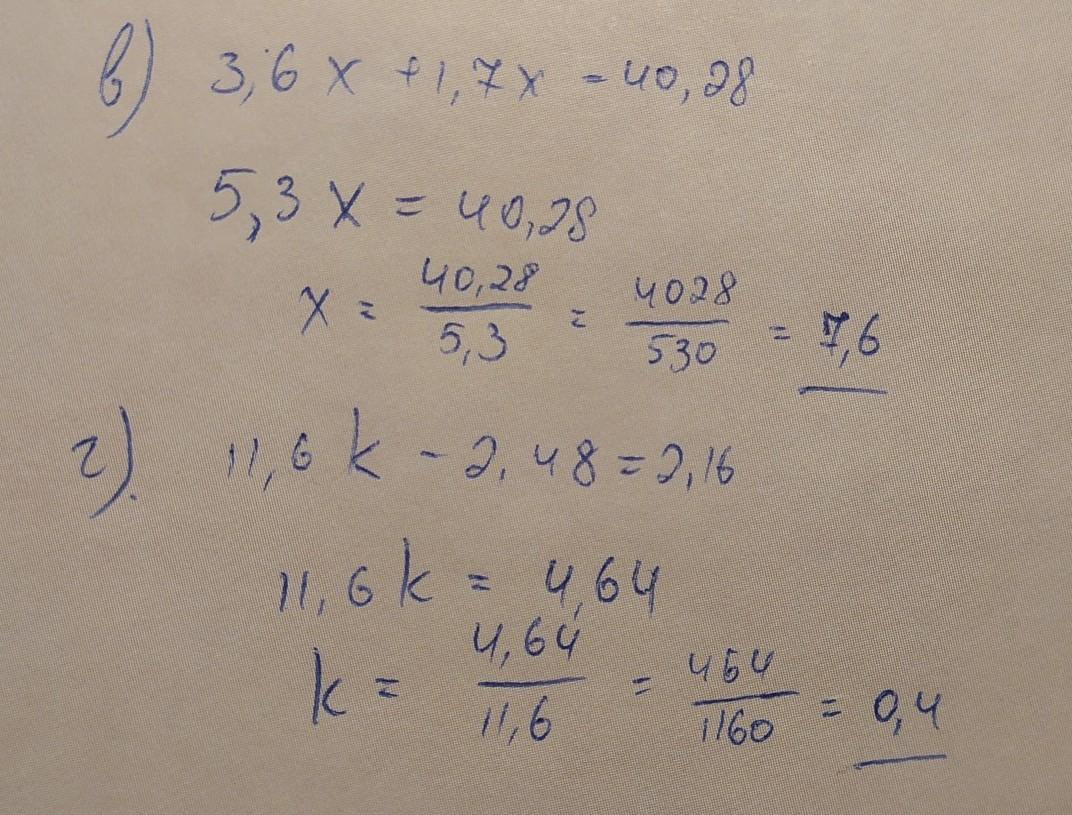 в) 3,6 x + 1,7 x = 40,28
5,3 x = 40,28
x = 40,28/5,3 = 4028/530 = 7,6
г). 11,6 k - 2,48 = 2,16
11,6 k = 4,64
k = 4,64/11,6 = 464/1160 = 0,4